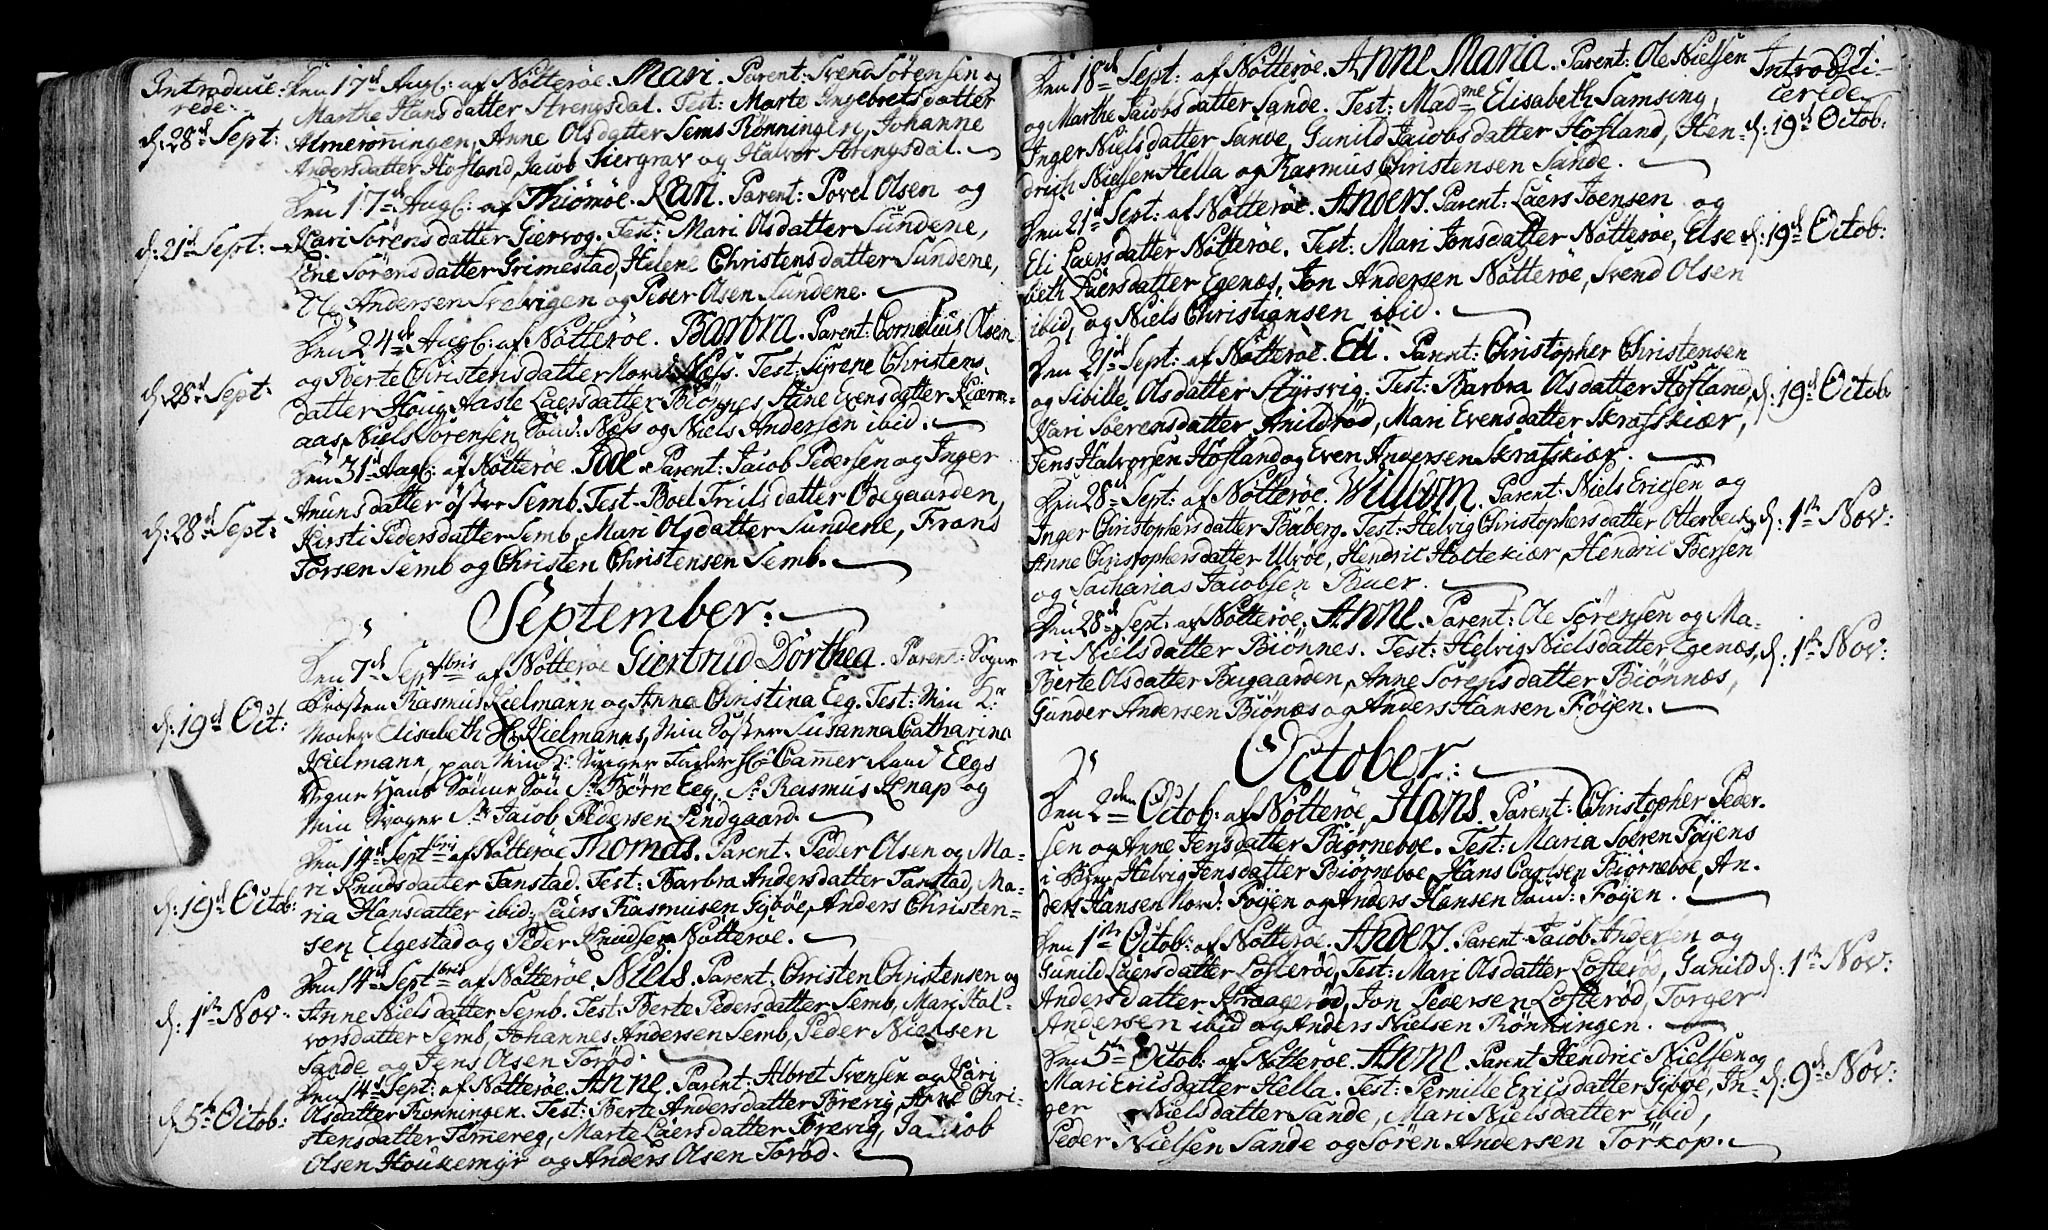 Introduce-
rede:
Den 17de Augs: af Nötteröe. Mari. Parent: Svend Sörensen og
Marthe Hans datter Strengsdal. Test: Marte Ingebrets datter
d: 28de Sept:
Almeröningen, Anne Olsdatter Sems Rönningen, Johanne
Andersdatter Hofland, Jacob Siergrav og Halvor Strengsdal.
Den 17de Augs: af Thiömöe. Kari. Parent: Povel Olsen og
d: 21de Sept:
Kari Sörens datter Giervog. Test: Mari Olsdatter Sundene,
Line Sörens datter Grimestad, Helene Christens datter Sundene,
Ole Andersen Svelvigen og Peder Olsen Sundene.
Den 24de Augs: af Nötteröe. Barbra. Parent: Cornelius Olsen
og Berte Christens datter Nord: Næss. Test: Syrene Christens-
d: 28de Sept:
datter Houg Aasle Laersdatter Biönnes Stine Evens datter Kiærn-
aas, Niels Sörensen Sönd: Nes og Niels Andersen ibid.
Den 31te Augs: af Nötteröe. Idde. Parent: Jacob Pedersen og Inger
Amunsdatter öster Semb. Test: Boel Truls datter Ödegaarden,
d: 28de Sept:
Kirsti Pedersdatter Semb, Mari Olsdatter Sundene, Frans
Torsen Semb og Christen Christensen Semb.
September:
Den 7de Septbris af Nötteröe Giertrud Dorthea. Parent: Sogne
Prosten Rasmus Kielmann og Anna Christina Eeg. Test: Min K:
d: 19de Oct:
Moder Elisabeth Sl. Kielmanns, Min Söster Susanna Catharina
Kielmann, paa Min K: Svoger Fader Hr Cammer Raad Eegs
Vegne Hans Sönne Sön Sr Börre Eeg, Sr Rasmus Knap og
Min Svoger Sr Jacob Pedersen Lindgaard.
Den 14de Septbri af Nötteröe Thomas. Parent: Peder Olsen og Ma-
ri Knuds datter Tanstad. Test: Barbra Anders datter Tanstad, Ma-
d: 19de Octob:
ria Hansdatter ibid: Laers Rasmusen Gyböe, Anders Christen-
sen Elgestad og Peder Knudsen Nötteröe.
Den 14de Septbris af Nötteröe. Niels. Parent: Christen Christensen og
d: 1ste Nov:
Anne Nielsdatter Semb. Test: Berte Pedersdatter Semb, Mari Hal-
vorsdatter Semb, Johannes Andersen Semb, Peder Nielsen
Sande og Jens Olsen Toröd.
Den 14de Sept: af Nötteröe. Anne. Parent: Albret Svensen og Kari
d: 5te Octob:
Olsdatter Rönningen. Test: Berte Anders datter Brevig, Anne Chri-
stens datter Temereg, Marte Laers datter Brevig, Jacob
Olsen Houkemyr og Anders Olsen Toröd.
91.
Introdu-
cerede
Den 18de Sept: af Nötteröe. Anne Maria. Parent: Ole Nielsen
og Marthe Jacobs datter Sande. Test: Madme Elisabeth Samsing,
Inger Niels datter Sande, Gunild Jacobs datter Hofland, Hen-
d: 19de Octob:
drich Nielsen Hella og Rasmus Christensen Sande.
Den 21de Sept: af Nötteröe. Anders. Parent: Laers Joensen og
Eli Laersdatter Nötteröe. Test: Mari Jonsdatter Nötteröe, Else-
d: 19de Octob:
beth Laersdatter Egenæs, Jon Andersen Nötteröe, Svend Olsen
ibid, og Niels Christiansen ibid.
Den 21de Sept: af Nötteröe. Eli. Parent: Christopher Christensen
og Sibille Olsdatter Hyrsvig. Test: Barbra Olsdatter Hofland,
d: 19de Octob:
Kari Soerensdatter Anildröd, Mari Evensdatter Skrafskiær,
Jens Halvorsen Hofland og Even Andersen Skrafskiær.
Den 28de Sept: af Nötteröe. Willum. Parent: Niels Ericsen og
Inger Christophers datter Buberg. Test: Helvig Christophers datter Otterbech,
d: 1ste Nov:
Anne Christophersdatter Ulröe, Hendric Holtekiær, Hendric Bersen
og Sacharias Jacobsen Buer.
Den 28de Sept: af Nötteröe. Anne. Parent: Ole Sörensen og Ma-
ri Nielsdatter Biönnes. Test: Helvig Nielsdatter Egenæs,
d: 1ste Nov:
Berte Olsdatter Bugaarden, Anne Sörens datter Biönnæs,
Gunder Andersen Biönæs og Anders Hansen Föyen.
October:
Den 2den Octob: af Nötteröe, Hans. Parent: Christopher Peder-
sen og Anne Jensdatter Biörneboe. Test: Maria Soeren Föyens
i Byen, Helvig Jensdatter Biörneboe, Hans Carlsen Biörneboe, An-
ders Hansen Nord: Föyen og Anders Hansen Sönd: Föyen.
Den 1ste Octob: af Nötteröe. Anders. Parent: Jacob Andersen og
Gunild Laersdatter Lofteröd, Test: Mari Olsdatter Lofteröd, Gunild
d: 1ste Nov:
Andersdatter Kraageröd, Jon Pedersen Lofteröd, Torger
Andersen ibid og Anders Nielsen Rönningen.
Den 5te Octob: af Nötteröe. Anne. Parent Hendric Nielsen og
Mari Erics datter Hella. Test: Pernille Erics datter Gyböe, In-
d: 9de Nov:
ger Nielsdatter Sande, Mari Nielsdatter ibid,
Peder Nielsen Sande og Sören Andersen Törkop.